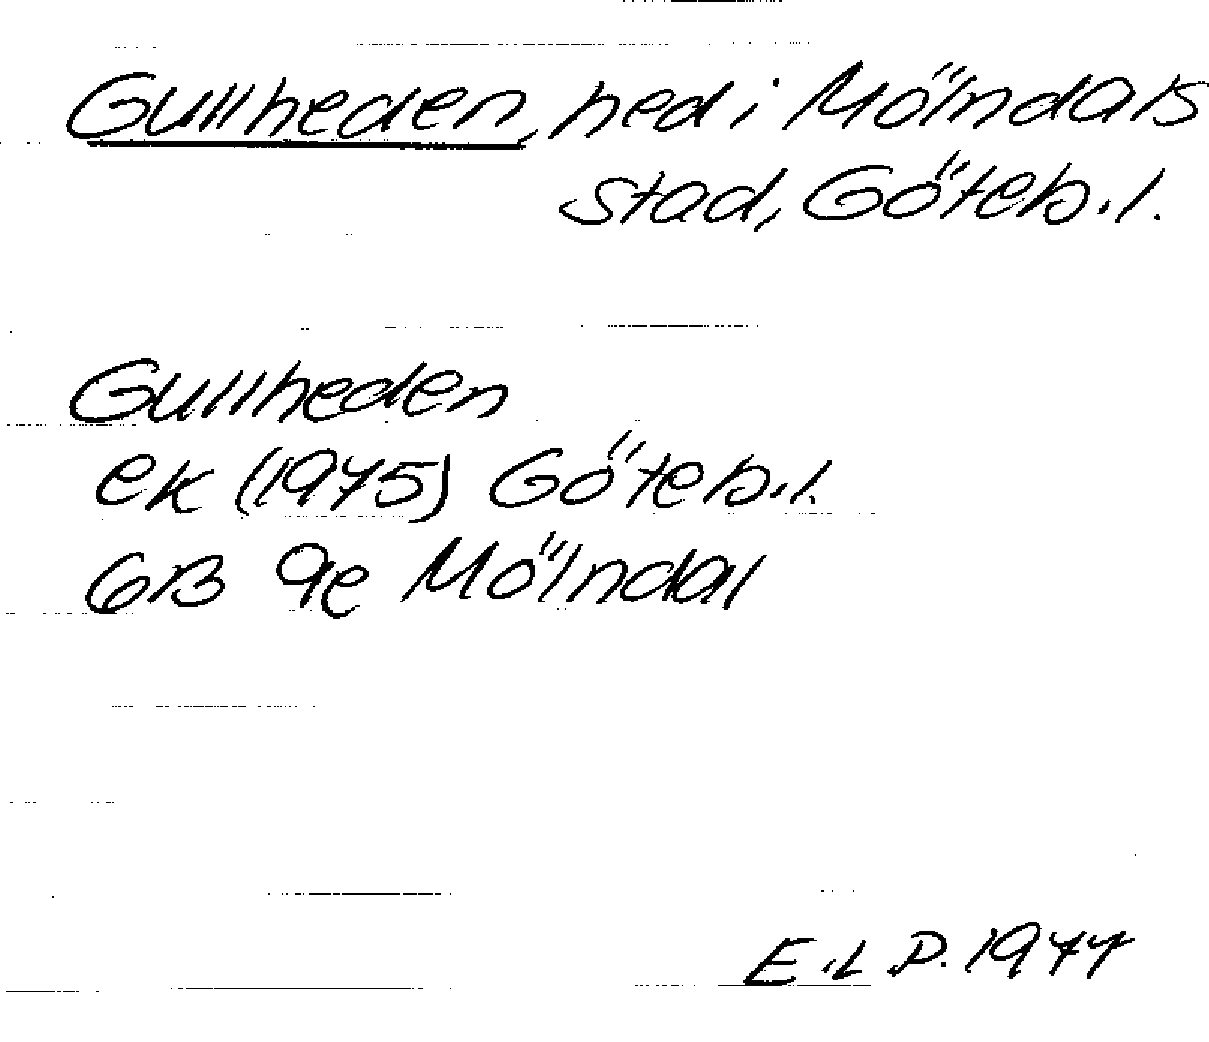 Gullheden, hed i Mölndals
stad, Göteb. l.
Gullheden
ek (1975) Göteb. l.
6B 9e Mölndal
E. L. P. 1977